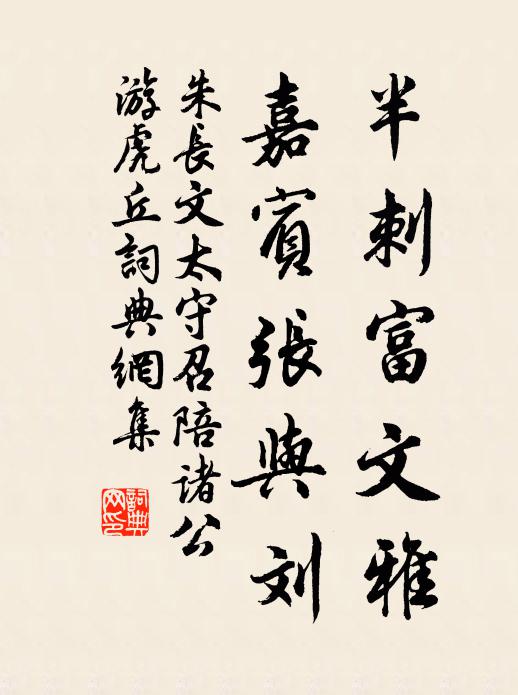 半刺富文雅
嘉賓張與刘
朱長文太守召陪諸公
游虎丘詞典網集
詞典
网印